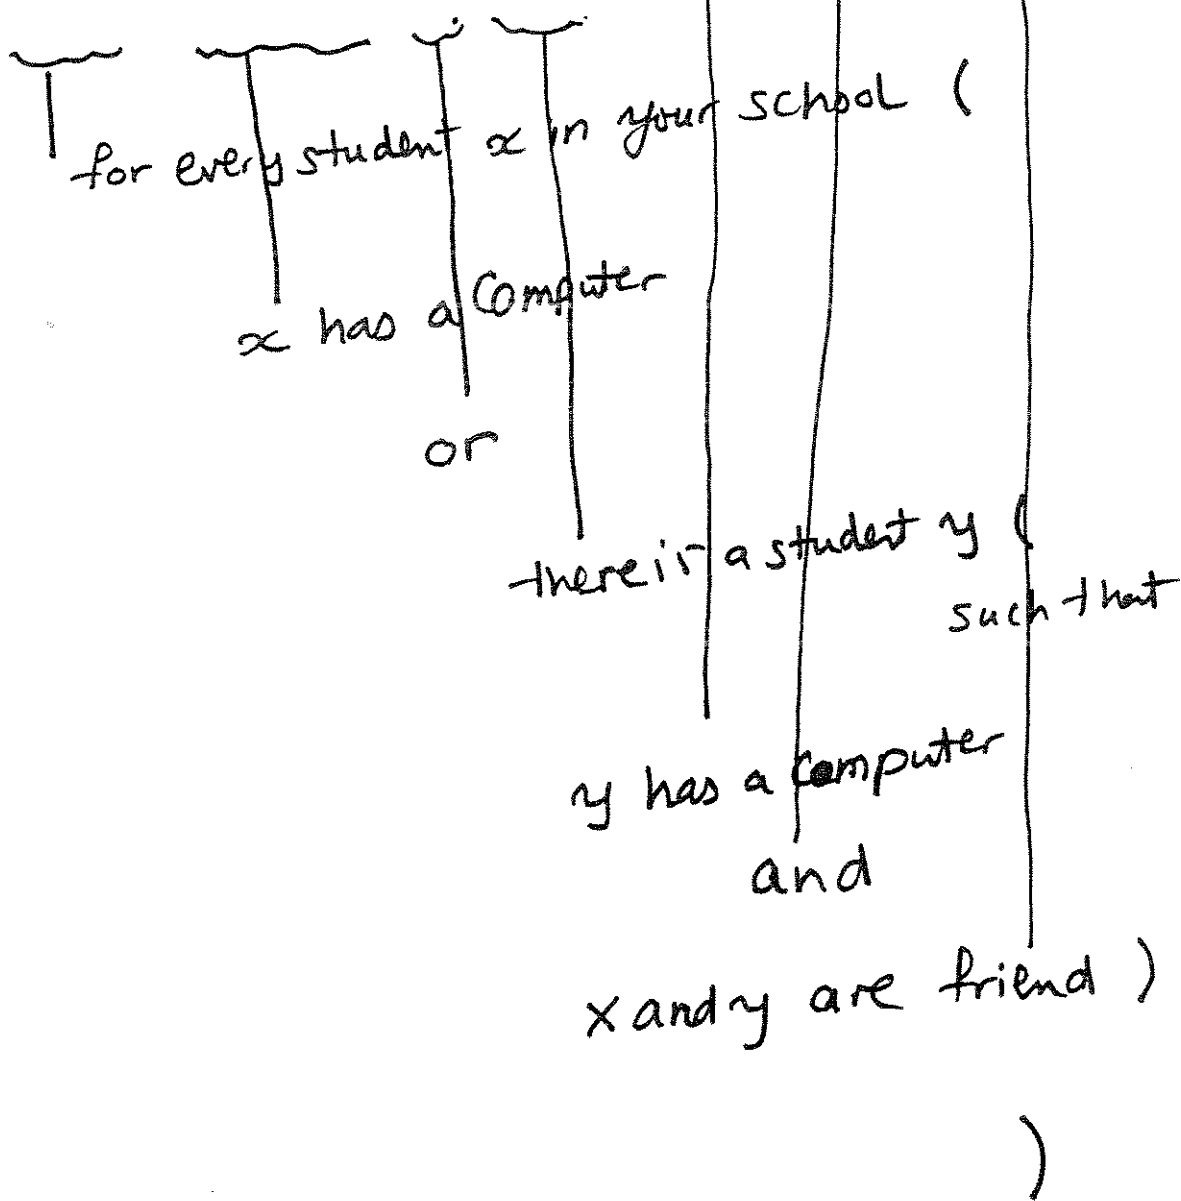 for every student x in your school (
x has a computer
or
there is a student y (
such that
y has a computer
and
x and y are friend )
)